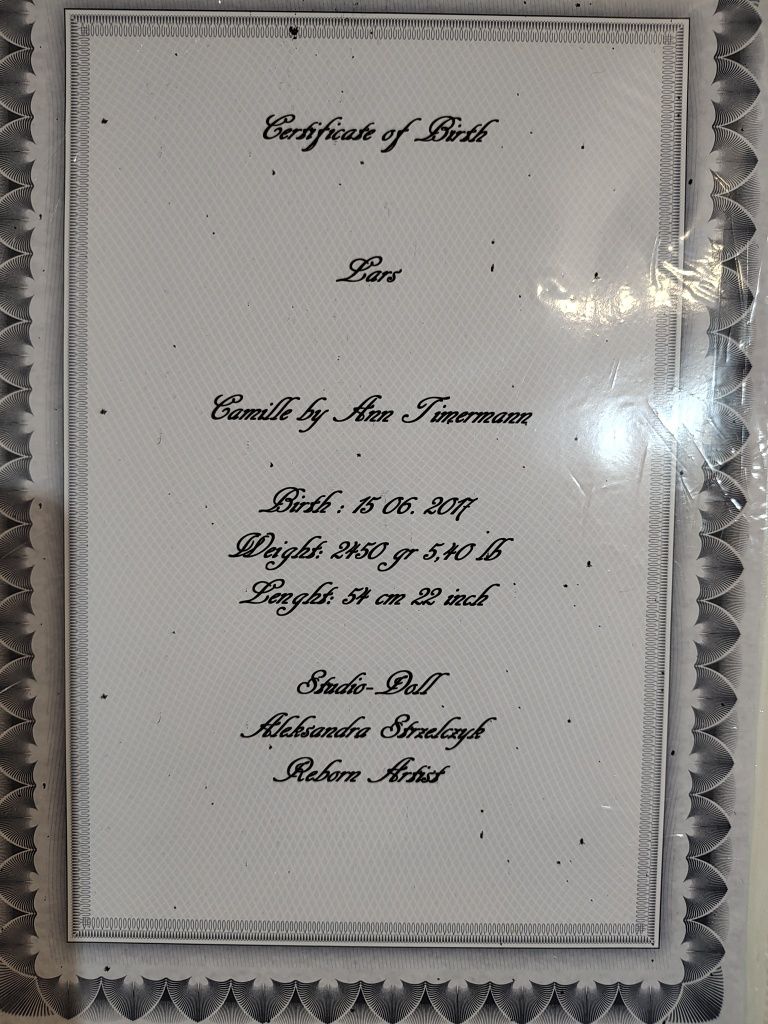 Certificate of Birth
Lars
Camille by Ann Timermann
Birth : 15 06. 2017
Weight: 2450 gr 5,40 lb
Lenght: 54 cm 22 inch
Studio-Doll
Aleksandra Strzelczyk
Reborn Artist